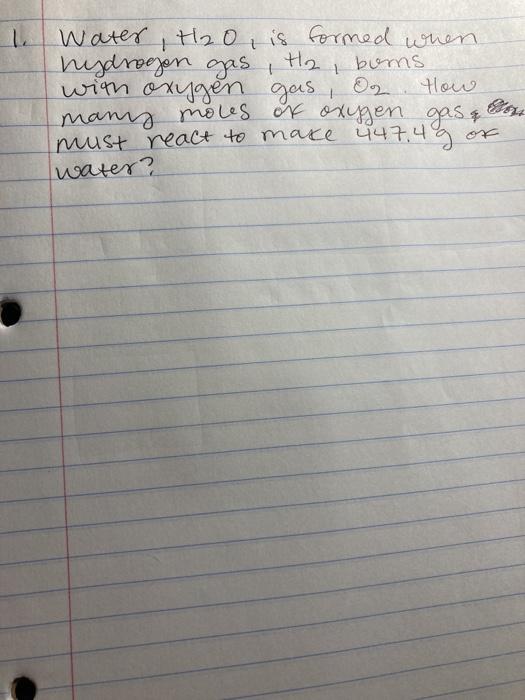 1. Water, H2O, is formed when
hydrogen gas, H2, burns
with oxygen gas, O2. How
many moles of oxygen gas
must react to make 447.4g of
water?